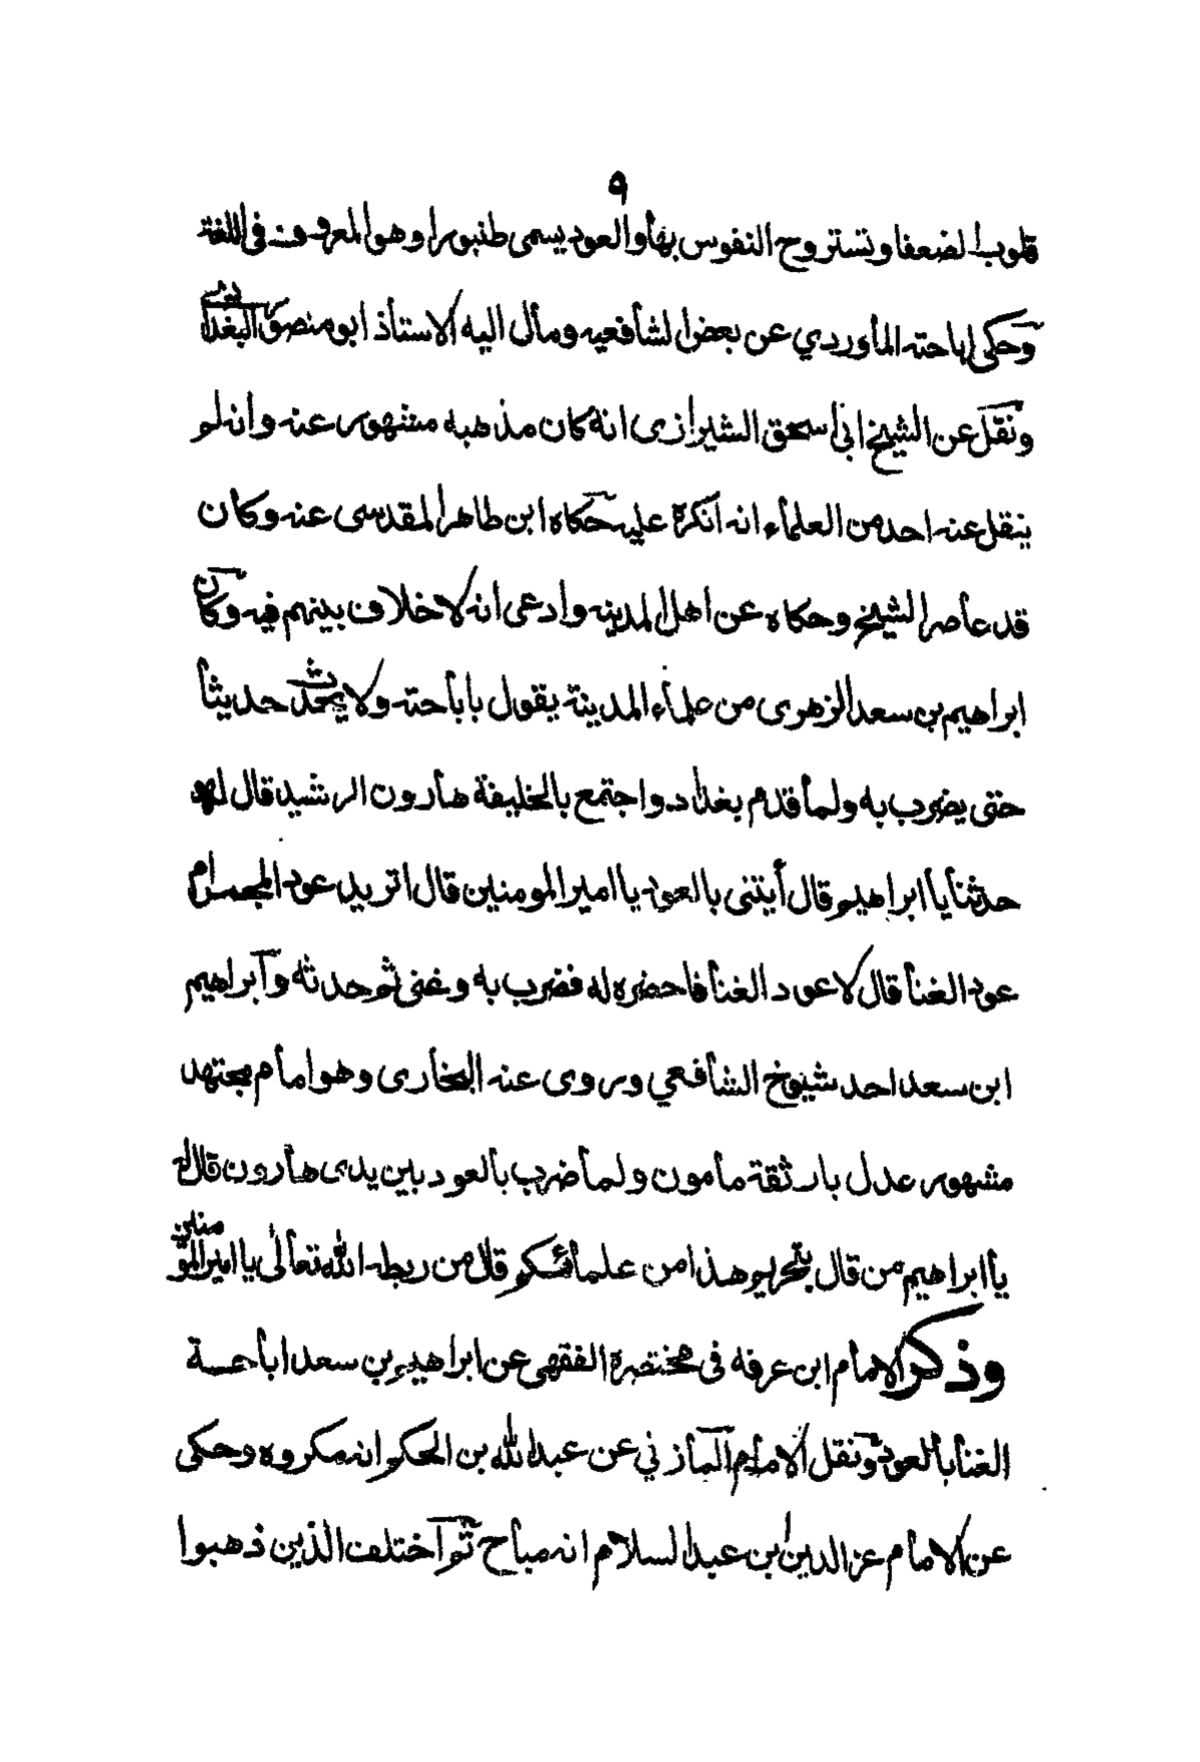 ٩
قلوب الضعفا وتستروح النفوس بها والعود يسمى طنبورا وهو المعروف في اللغة
وحكى اباحته الماوردي عن بعض الشافعيه ومال اليه الاستاذ ابو منصور البغدادي
ونقل عن الشيخ ابي اسحق الشيرازى انه كان مذهبه مشهور عنه وانه لم
ينقل عنه احد من العلماء انه انكرة عليه حكاه ابن طاهر المقدسى عنه وكان
قد عاصر الشيخ وحكاه عن اهل المدينه وادعى انه لا خلاف بينهم فيه وكان
ابراهيم بن سعد الزهرى من علماء المدينة يقول باباحته ولا يحدث حديثا
حتى يضرب به ولما قدم بغداد واجتمع بالخليفة هارون الرشيد قال له
حدثنا يا ابراهيم قال أيتنى بالعود يا امير المومنين قال اتريد عود المجمر ام
عود الغنا قال لا عود الغنا فاحضره له فضرب به وغنى ثم حدثه وابراهيم
ابن سعد احد شيوخ الشافعي وروى عنه البخارى وهو امام مجتهد
مشهور عدل بار ثقة مامون ولما ضرب بالعود بين يدى هارون قال له
يا ابراهيم من قال بتحريم هذا من علمائكم قال من ربطه الله تعالى يا امير المومنين
وذكر الامام ابن عرفه فى مختصرة الفقهى عن ابراهيم بن سعد اباحة
الغنا بالعود ونقل الامام المازني عن عبد الله بن الحكم انه مكروه وحكى
عن الامام عز الدين ابن عبد السلام انه مباح ثم اختلف الذين ذهبوا